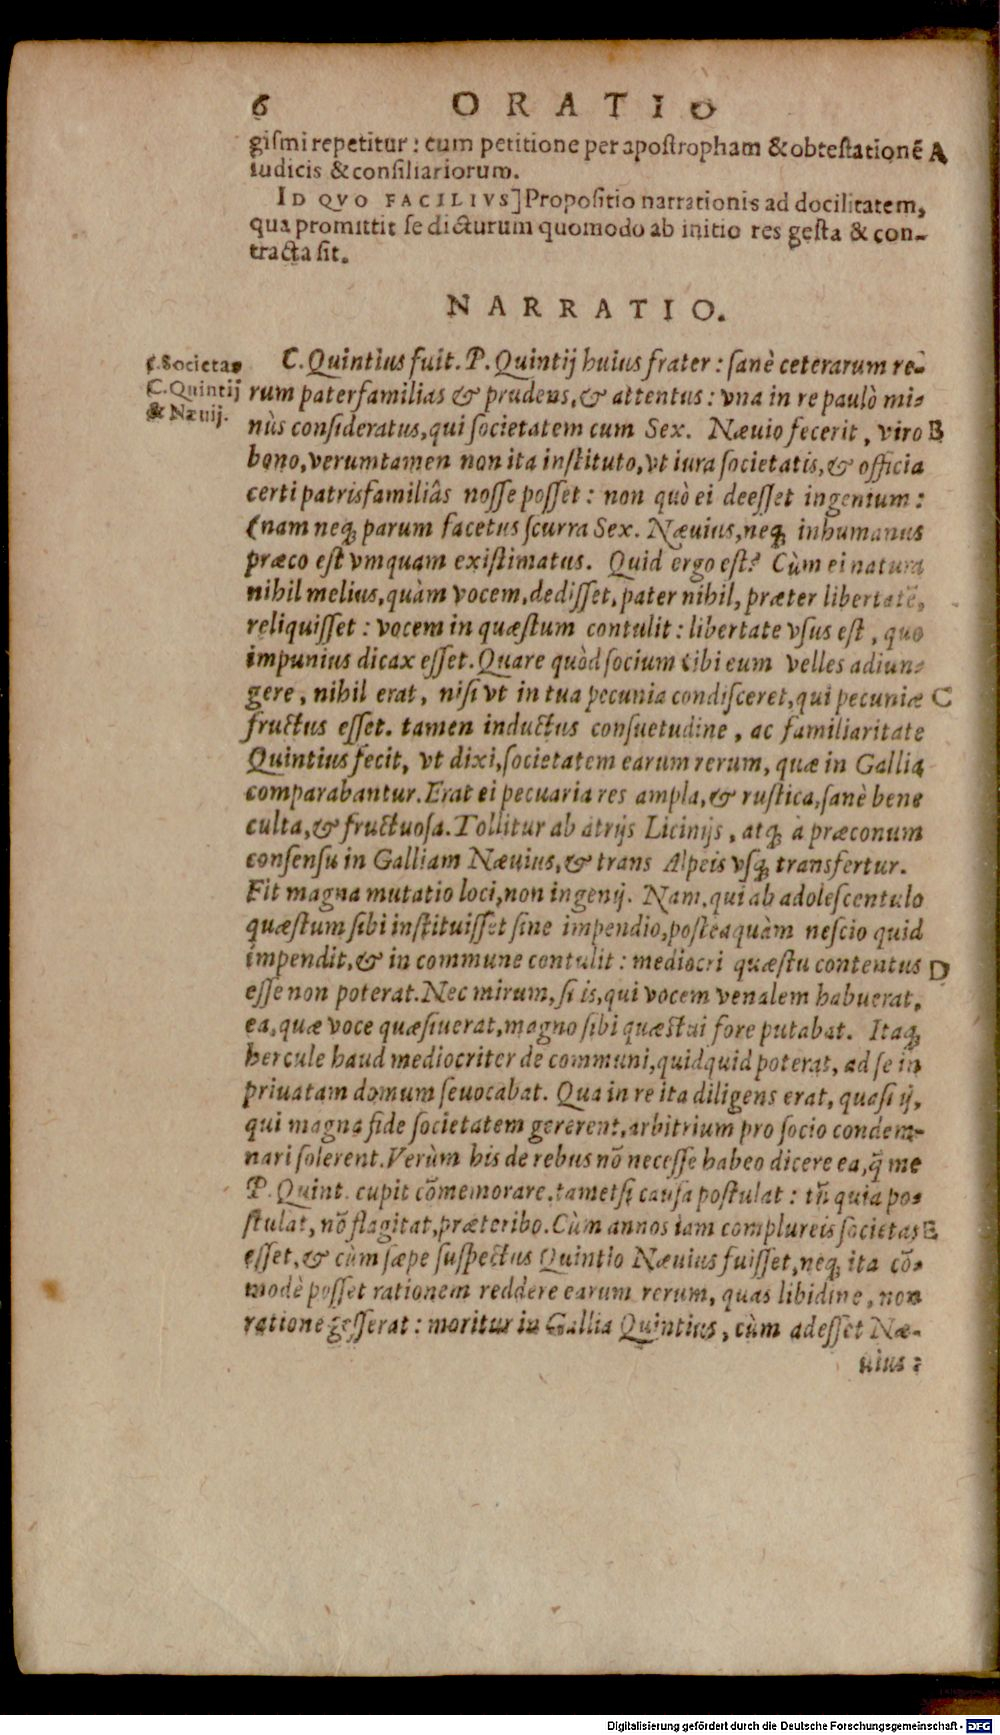 6 ORATIO
giſmi repetitur: cum petitione per apoſtropham & obteſtationẽ A
iudicis & conſiliariorum.
ID QVO FACILIVS] Propoſitio narrationis ad docilitatem,
qua promittit ſe dicturum quomodo ab initio res geſta & con-
tracta ſit.
NARRATIO.
C. Quintius fuit. P. Quintij huius frater: ſanè ceterarum re-
rum paterfamilias & prudens, & attentus: vna in re paulò mi-
nùs conſideratus, qui ſocietatem cum Sex. Næuio fecerit, viro B
bono, verumtamen non ita inſtituto, vt iura ſocietatis, & officia
certi patrisfamiliâs noſſe poſſet: non quò ei deeſſet ingenium:
(nam neq; parum facetus ſcurra Sex. Næuius, neq; inhumanus
præco eſt vmquam exiſtimatus. Quid ergo eſt? Cùm ei natura
nihil melius, quàm vocem, dediſſet, pater nihil, præter libertatẽ,
reliquiſſet: vocem in quæſtum contulit: libertate vſus eſt, quo
impunius dicax eſſet. Quare quòd ſocium tibi eum velles adiun-
gere, nihil erat, niſi vt in tua pecunia condiſceret, qui pecuniæ C
fructus eſſet. tamen inductus conſuetudine, ac familiaritate
Quintius fecit, vt dixi, ſocietatem earum rerum, quæ in Gallia
comparabantur. Erat ei pecuaria res ampla, & ruſtica, ſanè bene
culta, & fructuoſa. Tollitur ab atrijs Licinijs, atq; à præconum
conſenſu in Galliam Næuius, & trans Alpeis vſq; transfertur.
Fit magna mutatio loci, non ingenij. Nam, qui ab adoleſcentulo
quæſtum ſibi inſtituiſſet ſine impendio, poſteaquàm neſcio quid
impendit, & in commune contulit: mediocri quæſtu contentus D
eſſe non poterat. Nec mirum, ſi is, qui vocem venalem habuerat,
ea, quæ voce quæſiuerat, magno ſibi quæſtui fore putabat. Itaq;
hercule haud mediocriter de communi, quidquid poterat, ad ſe in
priuatam domum ſeuocabat. Qua in re ita diligens erat, quaſi ij,
qui magna fide ſocietatem gererent, arbitrium pro ſocio condem-
nari ſolerent. Verùm his de rebus nõ neceſſe habeo dicere ea, q̃ me
P. Quint. cupit cõmemorare. tametſi cauſa poſtulat: tñ quia po-
ſtulat, nõ flagitat, præteribo. Cùm annos iam complureis ſocietas E
eſſet, & cùm ſæpe ſuſpectus Quintio Næuius fuiſſet, neq; ita cõ-
modè poſſet rationem reddere earum rerum, quas libidine, non
ratione geſſerat: moritur in Gallia Quintius, cùm adeſſet Næ-
uius:
C. Societas
C. Quintij
& Næuij.
Digitalisierung gefördert durch die Deutsche Forschungsgemeinschaft - DFG